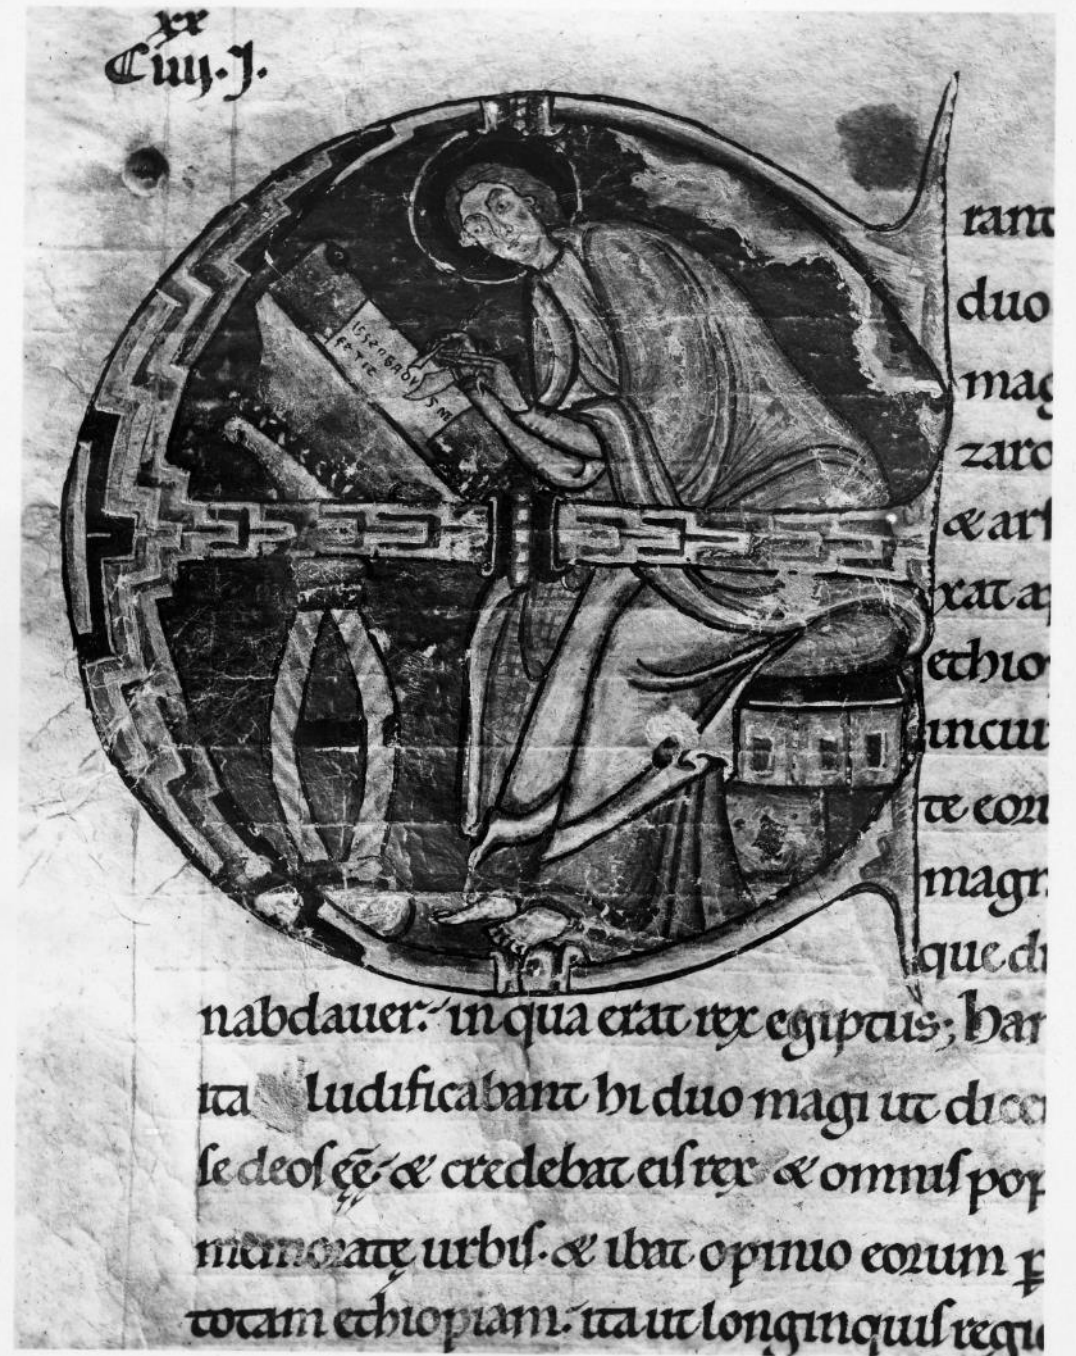 xx
Ciiii.J.
rant
duo
mag
zaro
& arſ
xat ap
ethio
incui
te eoru
magn
que di
nabdauer. in qua erat rex egiptus; han
ita ludificabant hi duo magi ut dice
ſe deoſ ęę̃. & credebat eiſ rex & omniſ pop
memoratę urbiſ. & ibat opinio eorum ꝑ
totam ethiopiam. ita ut longinquiſ regi